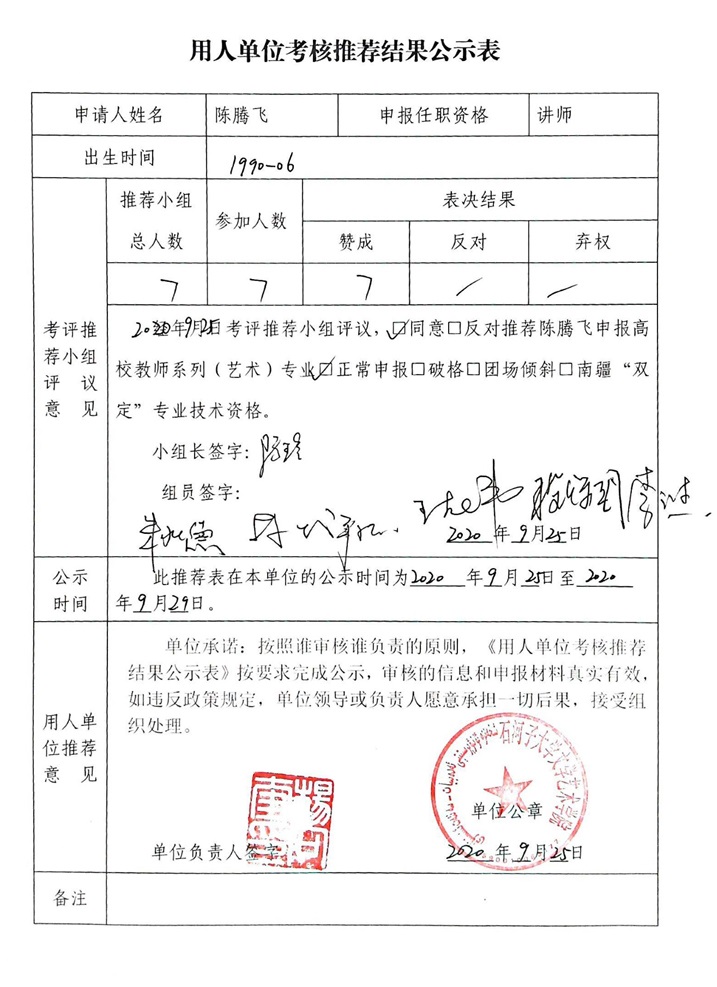 用人单位考核推荐结果公示表
申请人姓名 陈腾飞 申报任职资格 讲师
出生时间 1990-06
推荐小组总人数 参加人数 表决结果
赞成 反对 弃权
7 7 7 / /
考评推荐小组评议意见
2020年9月25日考评推荐小组评议，☑同意□反对推荐陈腾飞申报高
校教师系列（艺术）专业☑正常申报□破格□团场倾斜□南疆“双
定”专业技术资格。
小组长签字：
组员签字：
2020 年9月25日
公示时间
此推荐表在本单位的公示时间为2020 年9月25日至2020
年9月29日。
用人单位推荐意见
单位承诺：按照谁审核谁负责的原则，《用人单位考核推荐
结果公示表》按要求完成公示，审核的信息和申报材料真实有效，
如违反政策规定，单位领导或负责人愿意承担一切后果，接受组
织处理。
石河子大学文学艺术学院
单位公章
单位负责人签字
2020 年9月25日
备注